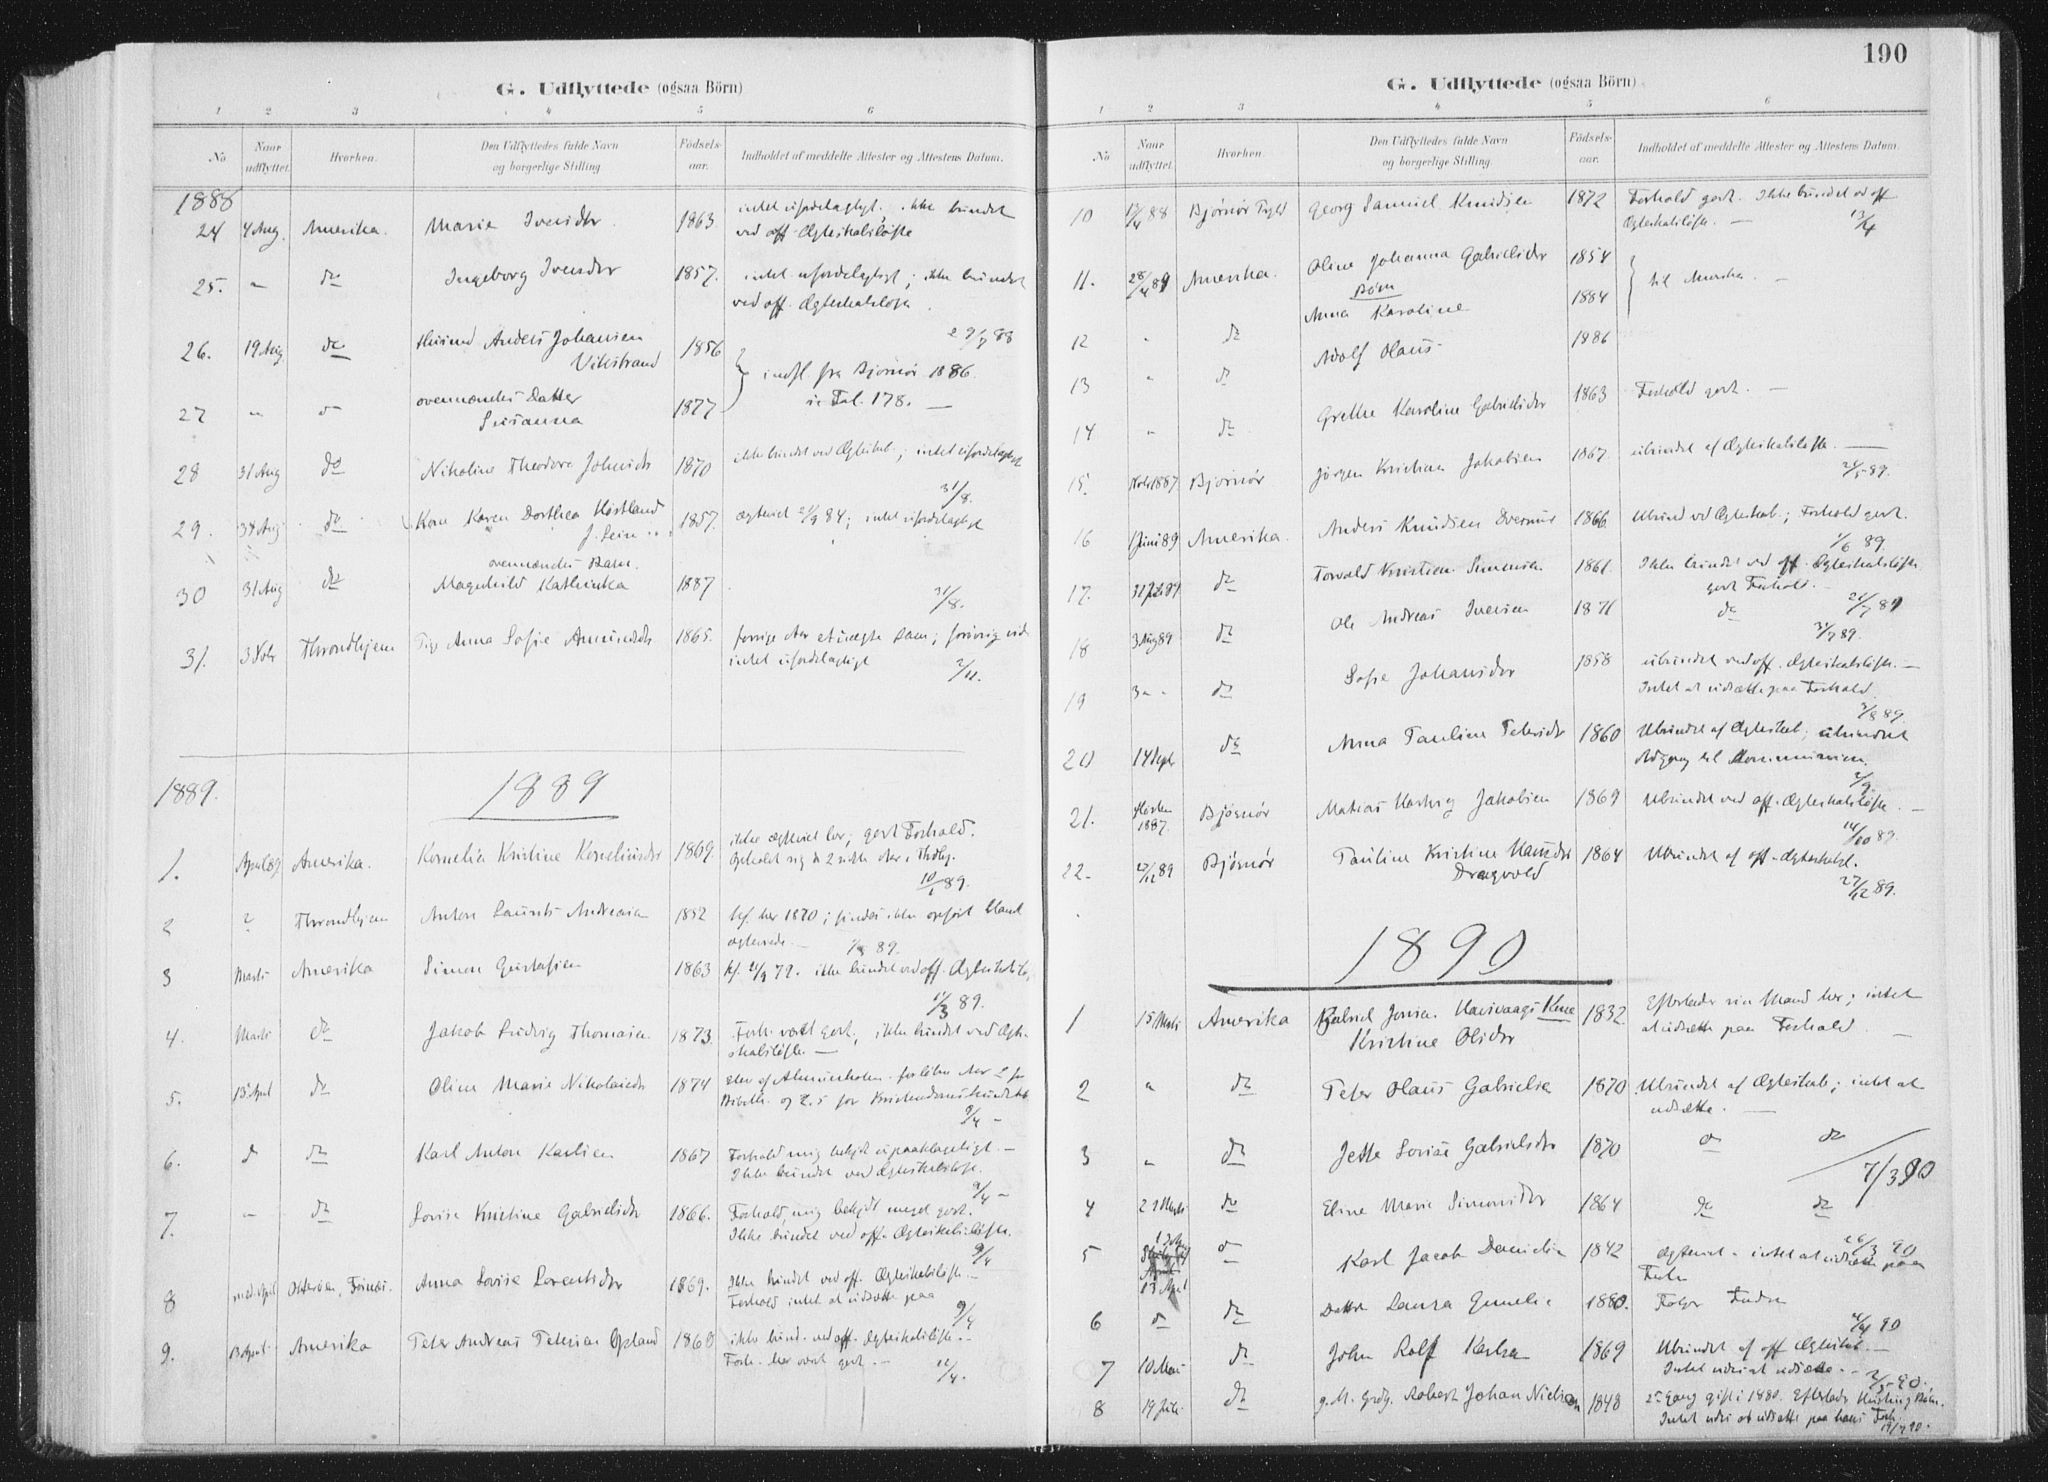 G. Udflyttede (ogsaa Börn)
1 2 3 4 5 6
No Naar udflyttet. Hvorhen. Den Udflyttedes fulde Navn og borgerlige Stilling Födsels-aar. Indholdet af meddelte Attester og Attestens Datum.
1888
24 4 Aug. Amerika. Marie Iversdtr. 1863. intet ufordelagtigt, ikke bundet
ved off. Ægteskabsløfte
25. " do Ingeborg Iversdtr 1857. intet ufordelagtigt; ikke bundet
ved off. Ægteskabsløfte.
26. 19 Aug do Husmd Anders Johansen 1856
Vikstrand
indfl. fra Bjørnør 1886.
27 " " ovennævntes Datter 1877 Fol. 178. —
Susanna
28 31 Aug do Nikoline Theodora Johnsdtr 1870 ikke bundet ved Ægteskab; intet ufordelagtigt
31/8.
29. 31 Aug do Kone Karen Dorthea Høstland 1857. ægteviet 84; intet ufordelagtigt
ovennævntes Barn.
30 31 Aug do Magnhild Kathinka 1887. 31/8.
31. 3 Novbr Throndhjem Pige Anna Sofie Amundsdtr 1865. forrige Aar et uægte Barn; forøvrig vides
intet ufordelagtigt 2/11.
1889. 1889
1. April 89 Amerika. Kornelia Kristine Korneliusdtr 1869. ikke ægteviet her; godt Forhold.
Opholdt sig 2 sidste Aar i Thdhj.
10/1 89.
2 ? Throndhjem Anton Laurits Andreasen 1852 kf. her 1870; findes ikke opført blandt
ægteviede. — 89.
3 Marts Amerika Simon Gustafsen 1863 kf. 79. ikke bundet ved off. Ægteskabsløfte
3 89.
4. Marts do Jakob Ludvig Thomasen 1873. Forh. været godt, ikke bundet ved Ægte-
skabsløfte. —
5. 13 April do Oline Marie Nikolaisdtr 1874 Elev af Almueskolen
Bibelh. og 2.5 for Kristendomskundskab
9/4 —
6. do do Karl Anton Karlsen 1867 Forhold mig bekjdt upaaklageligt. —
Ikke bundet ved Ægteskabsløfte.
9/4 —
7. " do Lovise Kristine Gabrielsdtr 1866. Forhold, mig bekjdt meget godt.
Ikke bundet ved off. Ægteskabsløfte.
9/4
8 med. April Osterøen, Fosnæs. Anna Lovise Lorentsdtr 1869. Ikke bundet ved off. Ægteskabsløfte —
Forhold intet at udsætte paa
9/4
9. 13 April Amerika Peter Andreas Petersen Opland 1860 ikke bund. ved off. Ægteskabsløfte. —
Forh. her været godt. — 12/4.
190
G. Udflyttede (ogsaa Börn)
1 2 3 4 5 6
No Naar udflyttet. Hvorhen. Den Udflyttedes fulde Navn og borgerlige Stilling Födsels-aar. Indholdet af meddelte Attester og Attestens Datum.
10 13/4 88 Bjørnør Georg Samuel Knudsen 1872 Forhold godt. Ikke bundet ved off
Ægteskabsløfte. — 13/4
11. 28/4 89 Amerika. Oline Johanna Gabrielsdtr 1854 til Amerika. —
Børn
12 " do Anna Karoline 1884
13 " do Adolf Olaus 1886
14 " do Grethe Karoline Gabrielsdtr 1863 Forhold godt. —
15. Novbr 1887 Bjørnør Jørgen Kristian Jakobsen 1867. ubundet af Ægteskabsløfte. —
24/5 89.
16 1 Juni 89 Amerika. Anders Knudsen 1866. Ubund. ved Ægteskab.; Forhold godt.
1/6 89.
17. do Torvald Kristian Simonsen 1861. Ikke bundet ved off. Ægteskabsløfte
godt Forhold. —
18 3 Aug 89 do Ole Andreas Iversen 1871 do
31/7 89.
19 3 " " do Sofie Johansdtr 1858 ubundet ved off. Ægteskabsløfte. —
Intet at udsætte paa Forhold.
3/8 89.
20 14 Septr do Anna Pauline Petersdtr 1860 Ubundet af Ægteskab; ubundet
Adgang til Kommunion.
21. Høsten 1887. Bjørnør Matias Hartvig Jakobsen 1869 Ubundet ved off. Ægteskabsløfte. —
14/10 89.
22. 27/12 89 Bjørnør Pauline Kristine Hansdtr 1864 Ubundet af off. Ægteskabsl.
Dragvold
27/12 89.
1890
1 15 Marts Amerika Gabriel Jonsen Havsvaags Kone 1832. Efterlader sin Mand her; intet
Kristine Olsdtr at udsætte paa Forhold. —
2 " do Peter Olaus Gabrielsen 1870 Ubundet af Ægteskab; intet at
udsætte. —
3 " do Jette Lovise Gabrielsdtr 1870 do do
7/3 90
4 29 Marts do Eline Marie Simonsdtr 1864 do do
26/3 90
5 13 April do Karl Jacob Danielsen 1842 Ægteviet — intet at udsætte paa
Forh.
6 do do Datter Laura Gunelie 1880. Følger Fader
4/4 90
7 10 Mai do John Rolf Karlsen 1869 Ubundet af off Ægteskab. —
Intet vides at udsætte. —
2/5 90.
8 19 Juli do g. M. Grdg. Robert Johan Nielsen 1848 2den Gang gift i 1880. Efterlader Hustru og Børn.
Intet vides at udsætte paa hans Forh.
19/7 90.